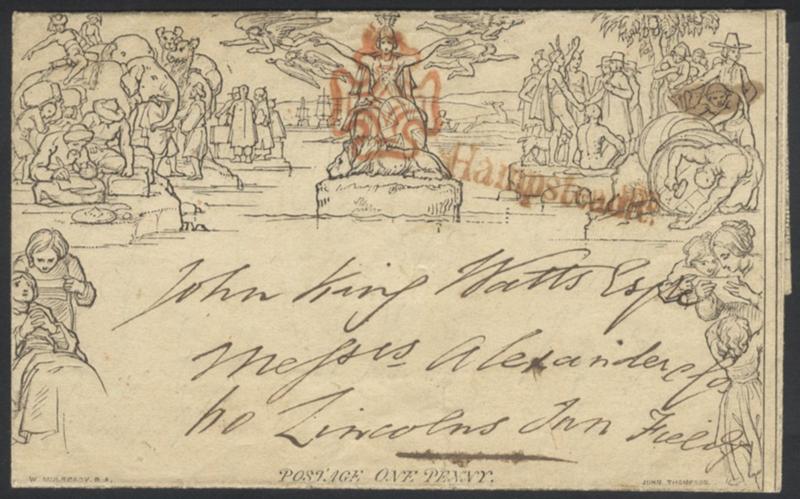 Hampstead
John King Watts Esqre
Messrs Alexander & Co
Lincolns Inn Fields
POSTAGE ONE PENNY.
W. MULREADY. R.A.
JOHN THOMPSON.